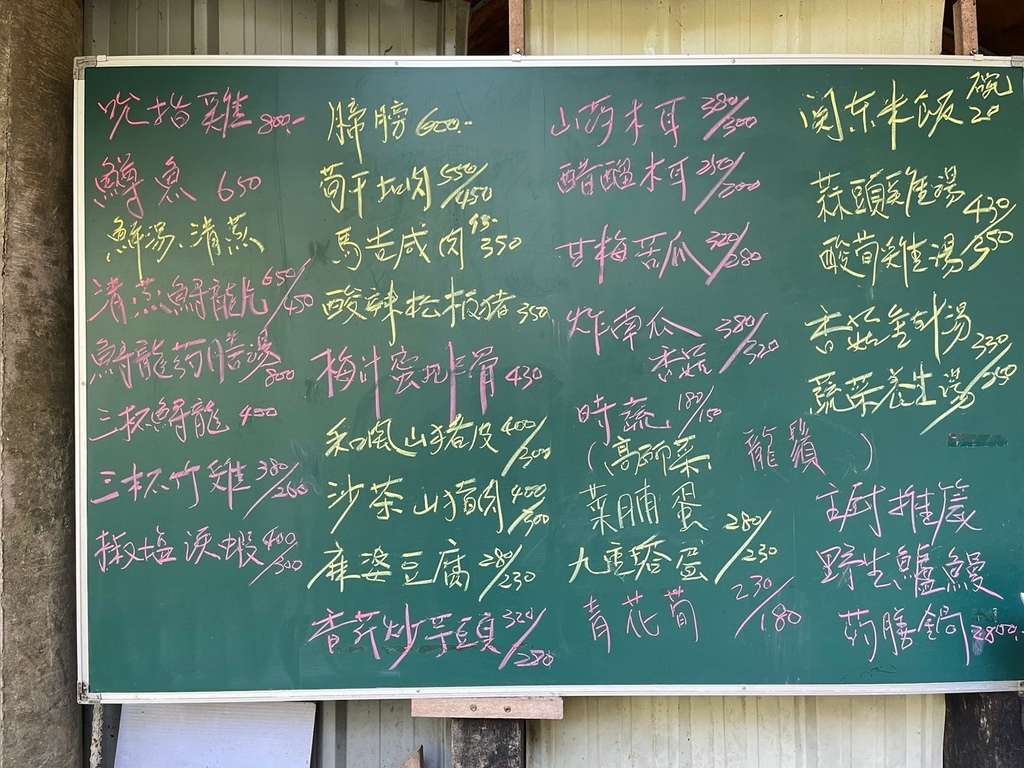 吮指雞 800.-
鱒魚 650
鮮湯.清蒸
清蒸鱘龍片 650/450
鱘龍药膳湯 800
三杯鱘龍 400
三杯竹雞 380/260
椒塩溪蝦 400/300
蹄膀 600.-
筍干扣肉 550/450
馬告咸肉 350
酸辣松板猪 350
梅汁蜜 骨 430
和風山猪皮 400/300
沙茶山猪肉 400/300
麻婆豆腐 280/230
香芹炒芋頭 320/280
山药木耳 380/300
醋醃木耳 250/200
甘梅苦瓜 320/280
炸南瓜 380/320
香菇
時蔬 180/150
(高丽菜 龍鬚)
菜脯蛋
九層塔蛋 280/230
青花筍 230/180
関东米飯 碗20
蒜頭雞湯 430/350
酸筍雞湯
香菇金針湯 330/250
蔬菜養生湯
主厨推薦
野生鱸鰻
药膳鍋 2800.-